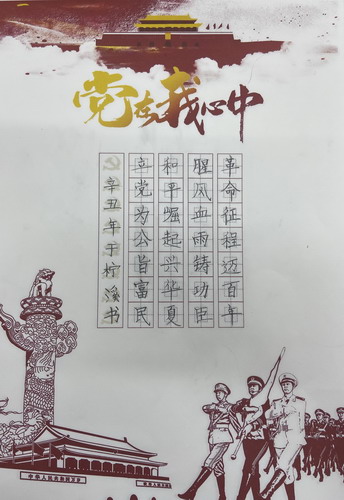 党在我心中
革命征程迈百年
腥风血雨铸功臣
和平崛起兴华夏
立党为公旨富民
辛丑年于柠溪书
中华人民共和国万岁